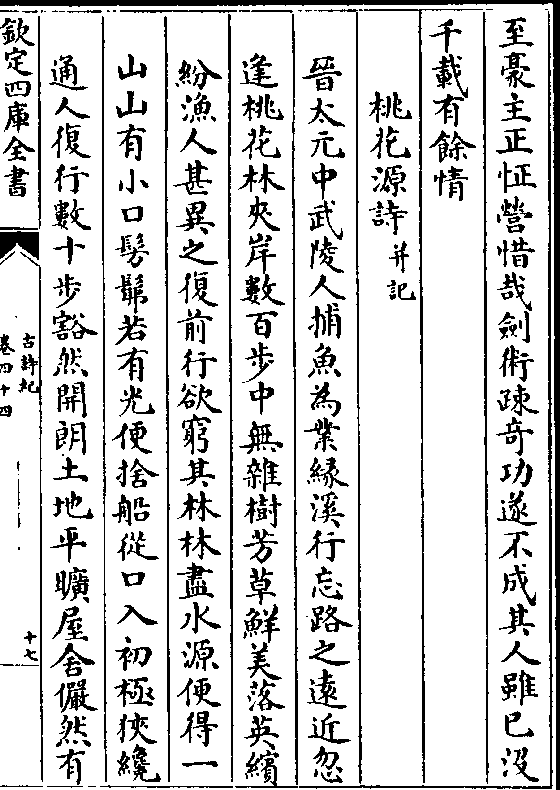 至豪主正怔營惜哉劍術疎奇功遂不成其人雖已沒
千載有餘情
桃花源詩并記
晉太元中武陵人捕魚為業緣溪行忘路之遠近忽
逢桃花林夾岸數百步中無雜樹芳草鮮美落英繽
紛漁人甚異之復前行欲窮其林林盡水源便得一
山山有小口髣髴若有光便捨船從口入初極狹纔
通人復行數十步豁然開朗土地平曠屋舍儼然有
欽定四庫全書
古詩紀
卷四十四
十七